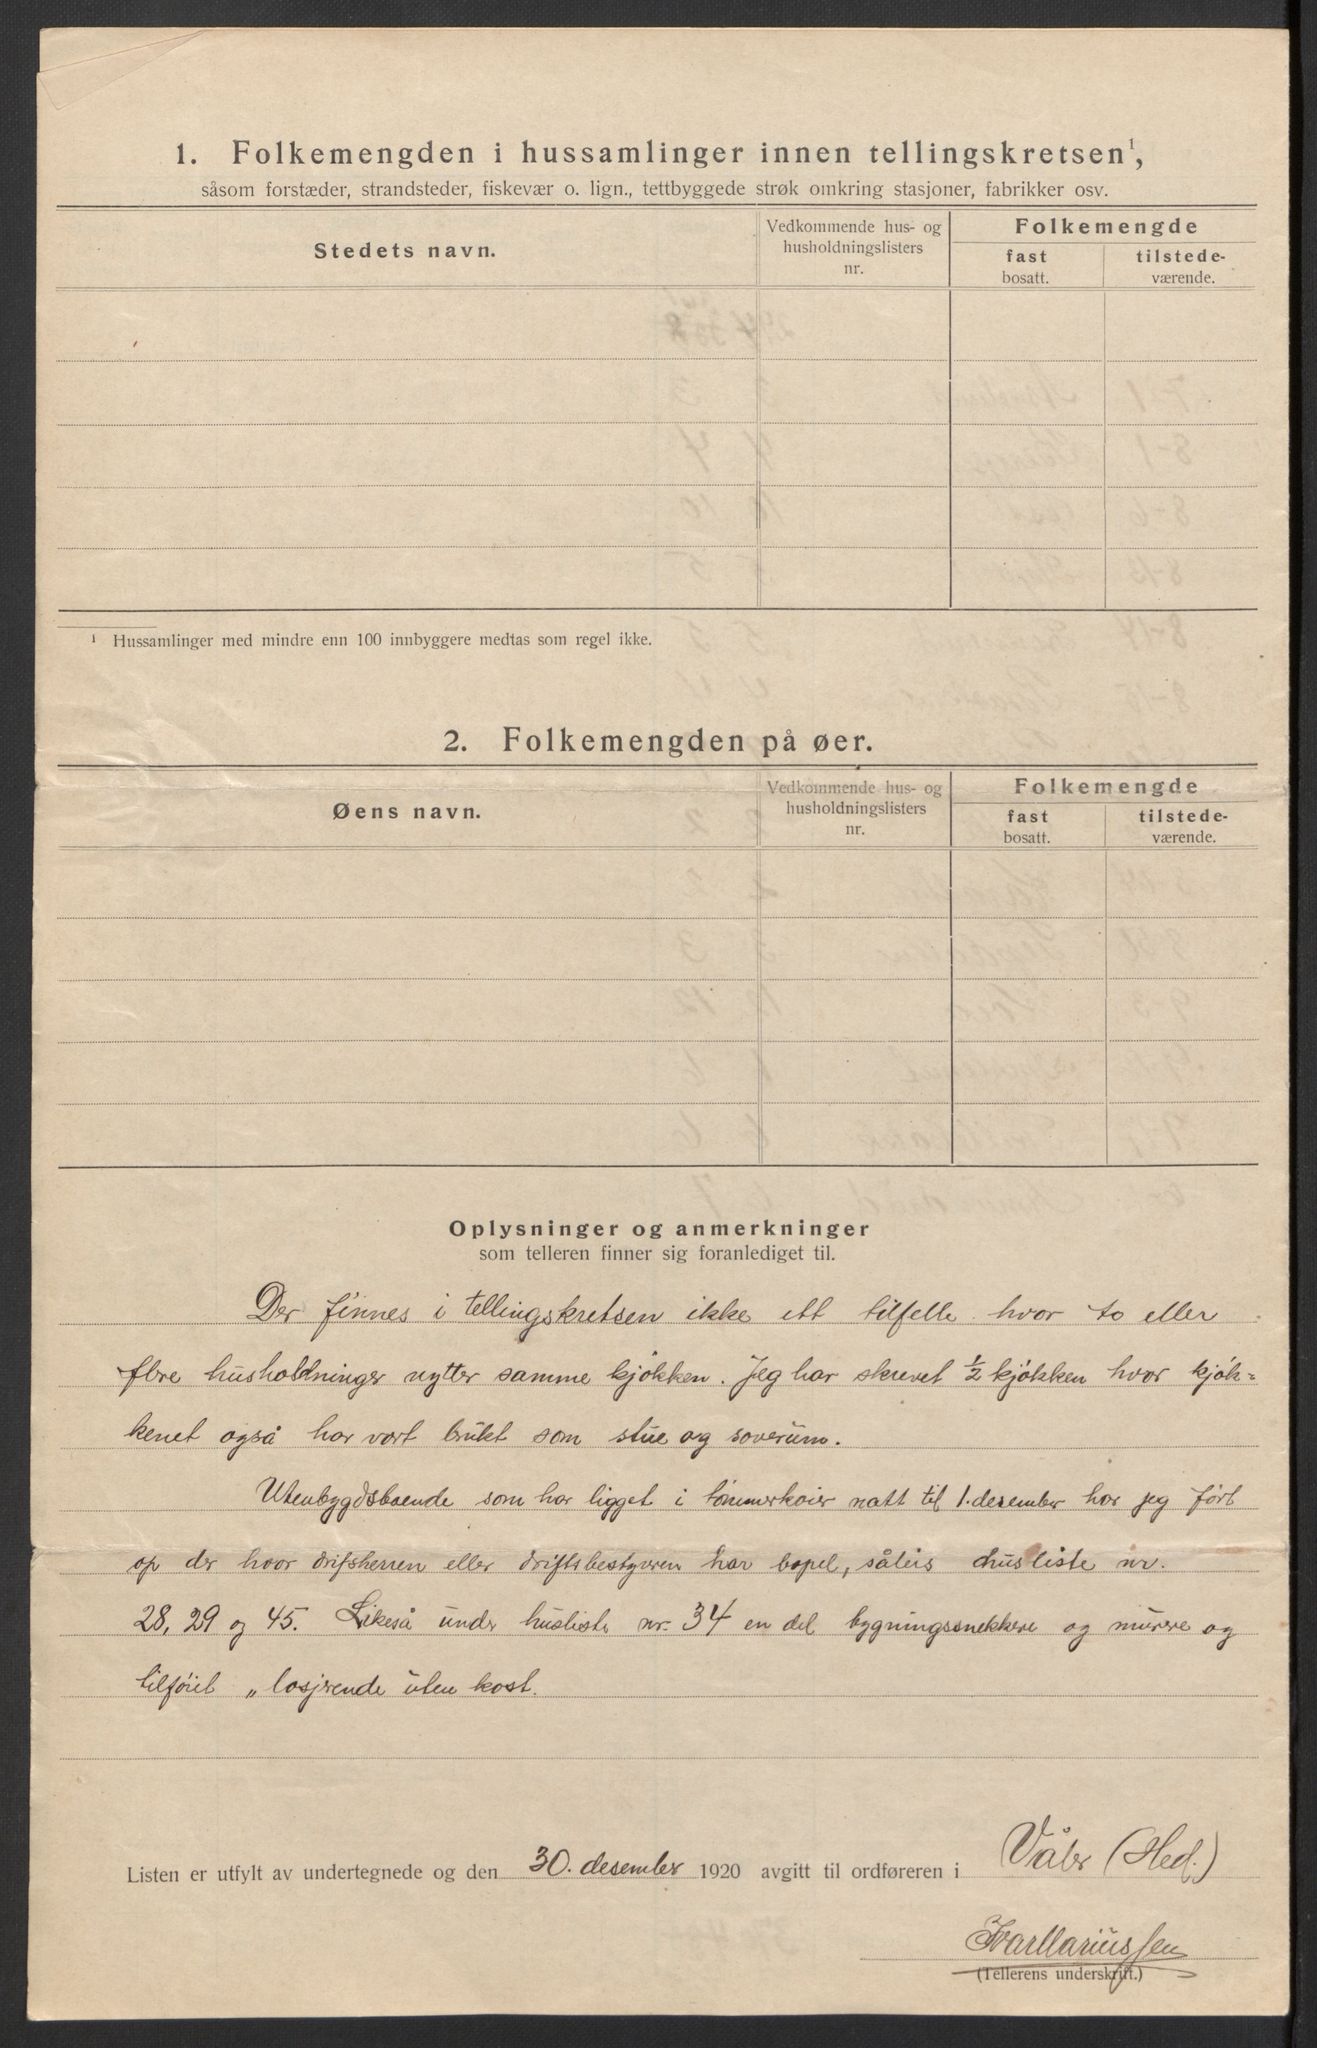 1. Folkemengden i hussamlinger innen tellingskretsen¹,
såsom forstæder, strandsteder, fiskevær o. lign., tettbyggede strøk omkring stasjoner, fabrikker osv.
Stedets navn.
Vedkommende hus- og
husholdningslisters
nr.
Folkemengde
fast
bosatt.
tilstede-
værende.
¹ Hussamlinger med mindre enn 100 innbyggere medtas som regel ikke.
2. Folkemengden på øer.
Øens navn.
Vedkommende hus- og
husholdningslisters
nr.
Folkemengde
fast
bosatt.
tilstede-
værende.
Oplysninger og anmerkninger
som telleren finner sig foranlediget til.
Der finnes i tellingskretsen ikke ett tilfelle hvor to eller
flere husholdninger nytter samme kjøkken. Jeg har skrevet ½ kjøkken hvor kjøk=
kenet også har vært brukt som stue og soverum.
Utenbygdsboende som har ligget i tømmerkoier natt til 1. desember har jeg ført
op der hvor drifsherren eller driftsbestyreren har bopel, såleis husliste nr.
28, 29 og 45. Likeså under husliste nr. 34 en del bygningssnekkere og murere og
tilføiet „losjerende uten kost.
Listen er utfylt av undertegnede og den 30. desember 1920 avgitt til ordføreren i Våler (Hed.)
Ivar Mariussen
(Tellerens underskrift.)